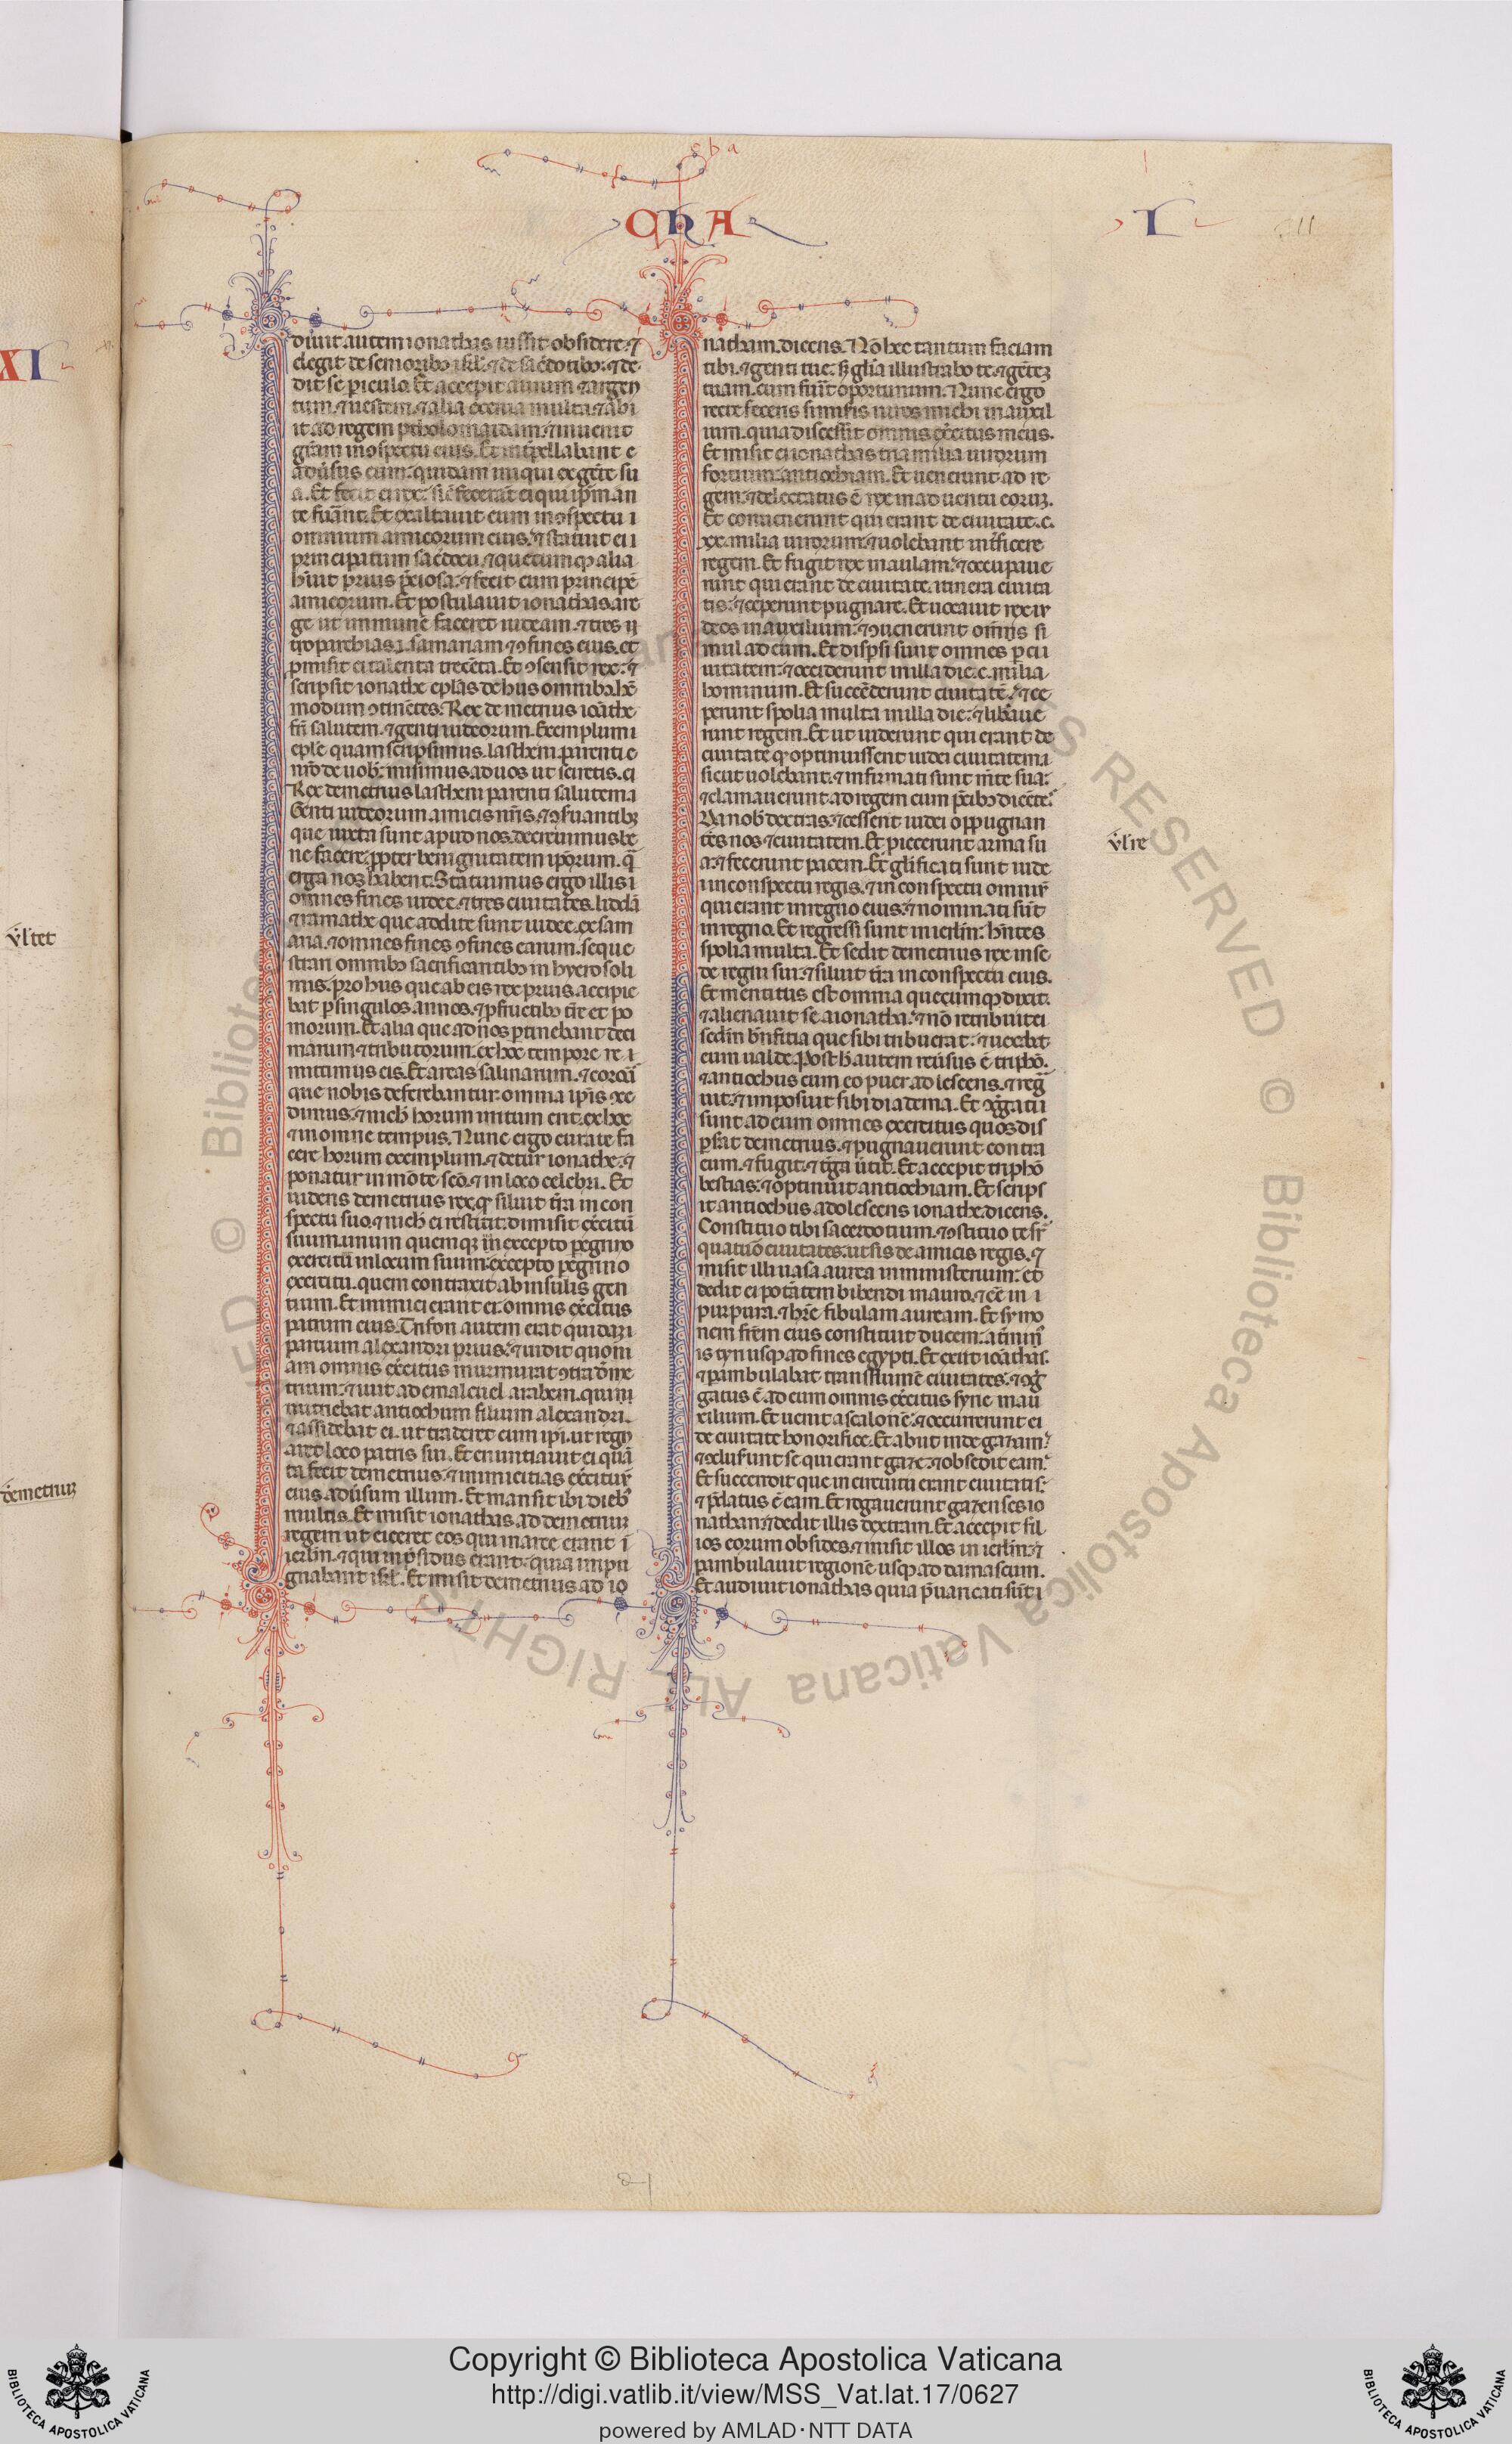 CHA
I
XI
diuit autem ionathas iussit obsidere. ⁊
elegit de senioribꝯ isrl̄. ⁊ de sacẽdotibꝯ. ⁊ de
dit se piculo. Et accepit aurum ⁊ argen
tum. ⁊ uestem. ⁊ alia exenia multa. ⁊ abi
it ad regem ptholomaidam. ⁊ inuenit
gr̄am in ɔspectu eius. Et int̄pellabant
aduersus eum. quidam iniqui ex gente su
a. Et fecit ei rex. sic̄ fecerāt ei qui ip̄m an
te fuāut. Et exaltauit eum in ɔspectu
omnium amicorum eius. ⁊ statuit ei
principatum sac̄docii. ⁊ quecumqꝫ alia
h̄uit prius p̄ciosa. ⁊ fecit eum principē
amicorum. Et postulauit ionathas a re
ge ut immunē faceret iudeam. ⁊ tres
toparchias. ⁊ samariam ⁊ ɔfines eius. et
promisit ei talenta trecēta. Et ɔsensit rex. ⁊
scripsit ionathe epl̄as de hiis omnibꝯ hūc
modum ɔtinētes. Rex demetrius ioāthe
fr̄i salutem. ⁊ genti iudeorum. Exemplum
eple quam scripsimus. lastheni parenti
nr̄o de uob̄. misimus ad uos ut sciretis.
Rex demetrius lastheni parenti salutem
Genti iudeorum amicis nr̄is. ⁊ ɔseruantibꝫ
que iusta sunt apud nos. decreuimus be
ne facere. ꝓpter benignitatem ip̄orum. q̄
erga nos habent. Statuimus ergo illis
omnes fines iudee. ⁊ tres ciuitates. liddā
⁊ ramathe que addite sunt iudee. ex sam
aria. ⁊ omnes fines ɔfines earum. seque
strari omnibꝯ sacrificantibꝯ in hyerosoli
mis. pro hiis que ab eis rex prius accipie
bat per singulos annos. ⁊ ꝓ fructibꝯ t̄re et po
morum. Et alia que ad nos ptinebant deci
marum ⁊ tributorum. ex hoc tempore re
mittimus eis. Et areas salinarum. ⁊ coronā
que nobis deferebantur. omnia ip̄is ɔce
dimus. ⁊ nich̄ horum irritum erit. ex hoc
⁊ in omne tempus. Nunc ergo curate fa
cere horum exemplum. ⁊ detur ionathe. ⁊
ponatur in mōte sc̄o. ⁊ in loco celebri. Et
uidens demetrius rex. qꝫ siluit t̄ra in con
spectu suo. ⁊ nich̄ ei restitit. dimisit exc̄itū
suum. unum quemqꝫ in excepto peg̃rino
exercitū in locum suum. excepto peg̃rino
exercitu. quem contraxit ab insulis gen
tium. Et inimici erant ei. omnis exc̄itus
patrum eius. Trifon autem erat quidam
partium alexandri prius. ⁊ uidit quoni
am omnis exc̄itus murmurat ɔtra dme
trium. ⁊ iuit ad emalcuel arabem. qui
nutriebat antiochum filium alexandri.
⁊ assidebat ei. ut traderet eum ip̄i. ut regn
aret loco patris sui. Et enuntiauit ei quā
ta fecit demetrius. ⁊ inimicitias exc̄ituum
eius. aduersum illum. Et mansit ibi diebꝯ
multis. Et misit ionathas. ad demetrium
regem ut eiceret eos qui in arce erant
ierl̄m. ⁊ qui in p̄sidiis erant. quia impu
gnabant isrl̄. Et misit demetrius ad io
nathan. dicens. Nō hec tantum faciam
tibi. ⁊ genti tue. sꝫ gl̄ia illustrabo te. ⁊ gētem
tuam. cum fuīt oportunum. Nunc ergo
recte feceris si miseris uiros michi in auxil
ium. quia discessit omnis exc̄itus meus.
Et misit ei ionathas tria milia uirorum
fortium. antiochiam. Et uenerunt ad re
gem. ⁊ delectatus ē rex in aduentu eorum.
Et conuenerunt qui erant de ciuitate. c.
xx. milia uirorum. ⁊ uolebant int̄ficere
regem. Et fugit rex in aulam. ⁊ occupaue
runt qui erant de ciuitate. itinera ciuita
tis. ⁊ ceperunt pugnare. Et uocauit rex iu
deos in auxilium. ⁊ ɔuenerunt omnis si
mul ad eum. Et dispersi sunt omnes p ciu
uitatem. ⁊ occiderunt in illa die. c. milia
hominum. Et succēderunt ciuitatē. ⁊ ce
perunt spolia multa in illa die. ⁊ libāue
runt regem. Et ut uiderunt qui erant de
ciuitate qꝫ optinuissent iudei ciuitatem
sicut uolebant. ⁊ infirmati sunt mēte sua.
⁊ clamauerunt ad regem cum p̄cibꝯ dicētes.
Da nob̄ dextras. ⁊ cessent iudei oppugnan
tes nos ⁊ ciuitatem. Et piecerunt arma su
a. ⁊ fecerunt pacem. Et gl̄ificati sunt iude
i in conspectu regis. ⁊ in conspectu omnium
qui erant in regno eius. ⁊ nominati sūt
in regno. Et regressi sunt in ierl̄m. hn̄tes
spolia multa. Et sedit demetrius rex in se
de regni sui. ⁊ siluit t̄ra in conspectu eius.
Et mentitus est omnia quecumqꝫ dixit.
⁊ alienauit se a ionatha. ⁊ nō retribuit ei
sedm̄ bn̄ficia que sibi tribuerat. ⁊ uexabat
eum ualde. Post h̄ autem reuersus ē triphō.
⁊ antiochus cum eo puer adolescens. ⁊ reg̃
uit. ⁊ imposuit sibi diadema. Et ɔg̃gati
sunt ad eum omnes exercitus quos dis
persat demetrius. ⁊ pugnauerunt contra
eum. ⁊ fugit. ⁊ t̄ga uertit. Et accepit triphō
bestias. ⁊ optinuit antiochiam. Et scrips
it antiochus adolescens ionathe. dicens.
Constituo tibi sacerdotium. ⁊ ɔstituo te sr̄
quatuo ciuitates. ut sis de amicis regis. ⁊
misit illi uasa aurea in ministerium. et
dedit ei potātem bibendi in auro. ⁊ eē in
purpura. ⁊ hr̄e fibulam auream. Et symo
nem fr̄em eius constituit ducem. a t̄min
is tyri usqꝫ ad fines egypti. Et exiit ioāthas.
⁊ pambulabat trans flumē ciuitates. ⁊ ɔg̃
gatus ē ad eum omnis exc̄itus syrie in au
xilium. Et uenit ascalonē. ⁊ occurrerunt ei
de ciuitate honorifice. Et abiit inde gazam.
⁊ ɔclusunt se qui erant gaze. ⁊ obsedit eam.
Et succendit que in circuitu erant ciuitatis.
⁊ p̄datus ē eam. Et rogauerunt gazenses io
nathan ⁊ dedit illis dextram. Et accepit fil
ios eorum obsides. ⁊ misit illos in ierl̄m. ⁊
pambulauit regionē usqꝫ ad damascum.
Et audiuit ionathas quia p̄uaricati sūt
v̄ltet
demetriuꝫ
v̄l re
Copyright © Biblioteca Apostolica Vaticana
http://digi.vatlib.it/view/MSS_Vat.lat.17/0627
powered by AMLAD·NTT DATA
BIBLIOTECA APOSTOLICA VATICANA
BIBLIOTECA APOSTOLICA VATICANA